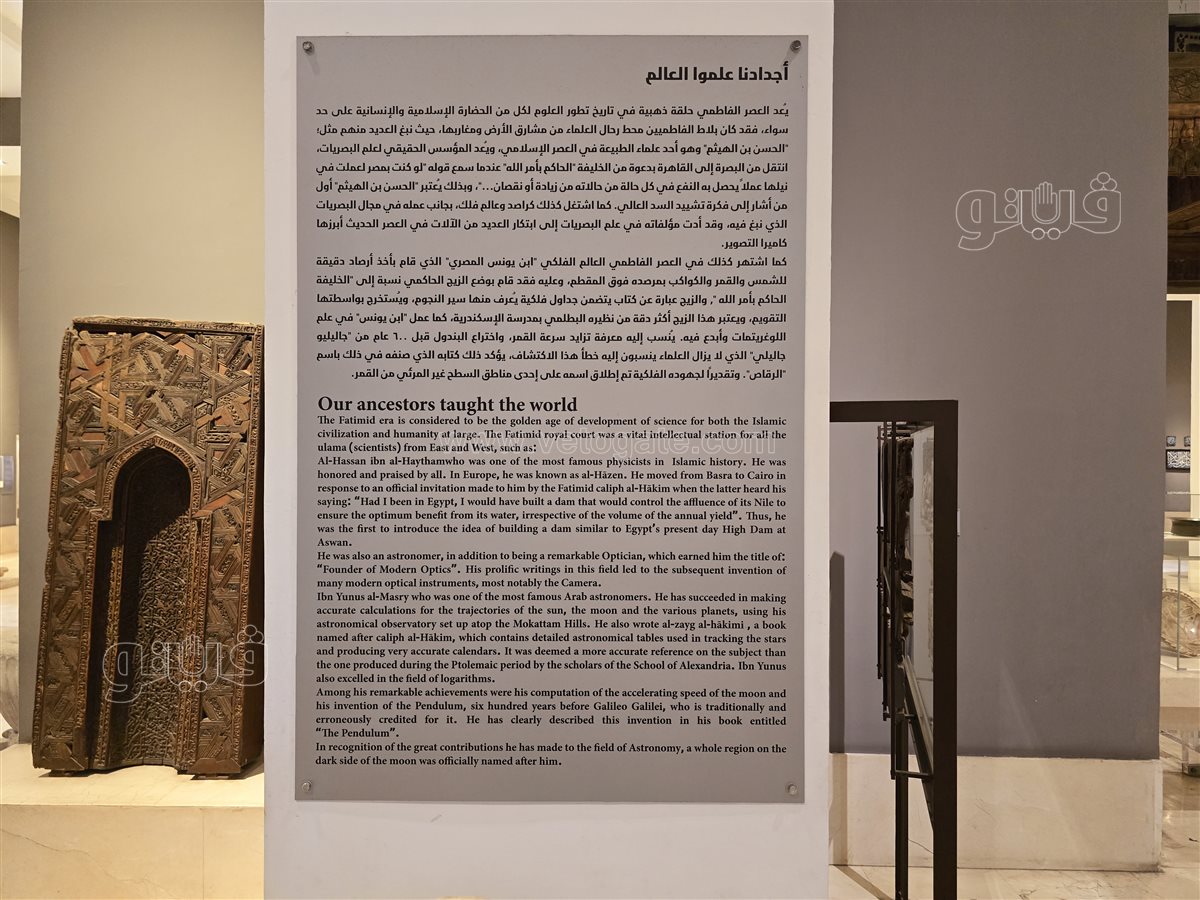 أجدادنا علموا العالم
يُعد العصر الفاطمي حلقة ذهبية في تاريخ تطور العلوم لكل من الحضارة الإسلامية والإنسانية على حد
سواء، فقد كان بلاط الفاطميين محط رحال العلماء من مشارق الأرض ومغاربها، حيث نبغ العديد منهم مثل؛
"الحسن بن الهيثم" وهو أحد علماء الطبيعة في العصر الإسلامي، ويُعد المؤسس الحقيقي لعلم البصريات،
انتقل من البصرة إلى القاهرة بدعوة من الخليفة "الحاكم بأمر الله" عندما سمع قوله "لو كنت بمصر لعملت في
نيلها عملاً يحصل به النفع في كل حالة من حالاته من زيادة أو نقصان..."، وبذلك يُعتبر "الحسن بن الهيثم" أول
من أشار إلى فكرة تشييد السد العالي. كما اشتغل كذلك كراصد وعالم فلك، بجانب عمله في مجال البصريات
الذي نبغ فيه، وقد أدت مؤلفاته في علم البصريات إلى ابتكار العديد من الآلات في العصر الحديث أبرزها
كاميرا التصوير.
كما اشتهر كذلك في العصر الفاطمي العالم الفلكي "ابن يونس المصري" الذي قام بأخذ أرصاد دقيقة
للشمس والقمر والكواكب بمرصده فوق المقطم، وعليه فقد قام بوضع الزيج الحاكمي نسبة إلى "الخليفة
الحاكم بأمر الله "، والزيج عبارة عن كتاب يتضمن جداول فلكية يُعرف منها سير النجوم، ويُستخرج بواسطتها
التقويم، ويعتبر هذا الزيج أكثر دقة من نظيره البطلمي بمدرسة الإسكندرية، كما عمل "ابن يونس" في علم
اللوغريتمات وأبدع فيه. يُنسب إليه معرفة تزايد سرعة القمر، واختراع البندول قبل ٦٠٠ عام من "جاليليو
جاليلي" الذي لا يزال العلماء ينسبون إليه خطأ هذا الاكتشاف، يؤكد ذلك كتابه الذي صنفه في ذلك باسم
"الرقاص". وتقديراً لجهوده الفلكية تم إطلاق اسمه على إحدى مناطق السطح غير المرئي من القمر.
Our ancestors taught the world
The Fatimid era is considered to be the golden age of development of science for both the Islamic
civilization and humanity at large. The Fatimid royal court was a vital intellectual station for all the
ulama (scientists) from East and West, such as:
Al-Hassan ibn al-Haythamwho was one of the most famous physicists in Islamic history. He was
honored and praised by all. In Europe, he was known as al-Hāzen. He moved from Basra to Cairo in
response to an official invitation made to him by the Fatimid caliph al-Hākim when the latter heard his
saying: “Had I been in Egypt, I would have built a dam that would control the affluence of its Nile to
ensure the optimum benefit from its water, irrespective of the volume of the annual yield”. Thus, he
was the first to introduce the idea of building a dam similar to Egypt's present day High Dam at
Aswan.
He was also an astronomer, in addition to being a remarkable Optician, which earned him the title of:
“Founder of Modern Optics”. His prolific writings in this field led to the subsequent invention of
many modern optical instruments, most notably the Camera.
Ibn Yunus al-Masry who was one of the most famous Arab astronomers. He has succeeded in making
accurate calculations for the trajectories of the sun, the moon and the various planets, using his
astronomical observatory set up atop the Mokattam Hills. He also wrote al-zayg al-hākimi , a book
named after caliph al-Hākim, which contains detailed astronomical tables used in tracking the stars
and producing very accurate calendars. It was deemed a more accurate reference on the subject than
the one produced during the Ptolemaic period by the scholars of the School of Alexandria. Ibn Yunus
also excelled in the field of logarithms.
Among his remarkable achievements were his computation of the accelerating speed of the moon and
his invention of the Pendulum, six hundred years before Galileo Galilei, who is traditionally and
erroneously credited for it. He has clearly described this invention in his book entitled
“The Pendulum”.
In recognition of the great contributions he has made to the field of Astronomy, a whole region on the
dark side of the moon was officially named after him.
www.vetogate.com
ڤيتو
ڤيتو